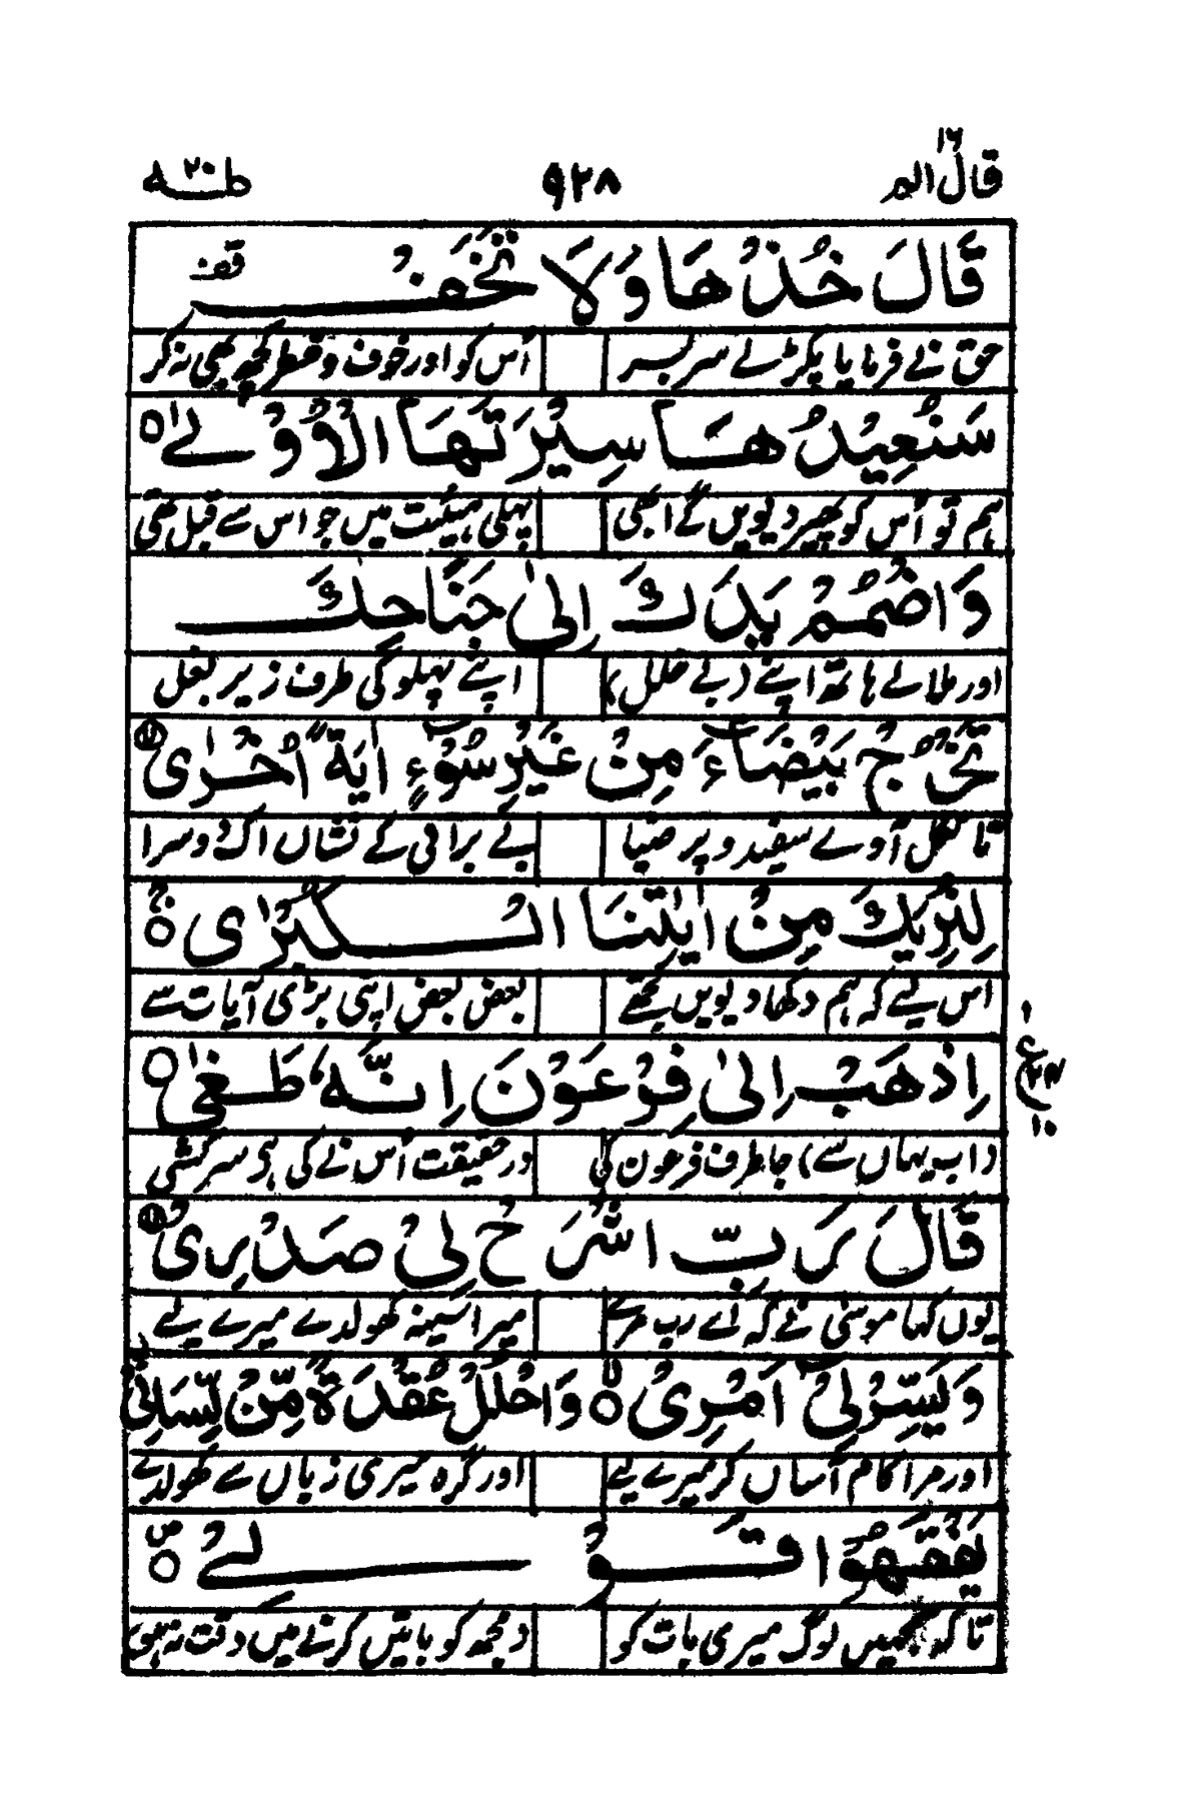 قال الم ١٦ ٩٢٨ طٰهٰ ٢٠
قَالَ خُذْهَا وَلَا تَخَفْ وقفة
حق نے فرمایا پکڑ لے سر بسر اُس کو اور خوف و خطر کچھ بھی نہ کر
سَنُعِيْدُهَا سِيْرَتَهَا الْاُوْلٰى ۝
ہم تو اُس کو پھیر دیویں گے ابھی پہلی ہیئت میں جو اس سے قبل تھی
وَاضْمُمْ يَدَكَ اِلٰى جَنَاحِكَ
اور ملا لے ہاتھ اپنے (بے خلل) اپنے پہلو کی طرف زیر بغل
تَخْرُجْ بَيْضَآءَ مِنْ غَيْرِ سُوْٓءٍ اٰيَةً اُخْرٰى
تا نکل آوے سفید و پر ضیا بے برائی کے نشاں اک دوسرا
لِنُرِيَكَ مِنْ اٰيٰتِنَا الْكُبْرٰى ۝ۚ
اس لیے کہ ہم دکھا دیویں تجھے بعض بعض اپنی بڑی آیات سے
اِذْهَبْ اِلٰى فِرْعَوْنَ اِنَّهٗ طَغٰى ۝
(اب یہاں سے) جا طرف فرعون کی در حقیقت اُس نے کی ہے سرکشی
ع
١٠
قَالَ رَبِّ اشْرَحْ لِىْ صَدْرِىْ
یوں کہا موسیٰ نے کہ اے رب مرے میرا سینہ کھولدے میرے لیے
وَيَسِّرْ لِىْٓ اَمْرِىْ ۝ وَاحْلُلْ عُقْدَةً مِّنْ لِّسَانِىْ
اور مرا کام آساں کر میرے لیے اور گرہ میری زباں سے کھولدے
يَفْقَهُوْا قَوْلِىْ ۝ص
تا کہ سمجھیں لوگ میری بات کو مجھ کو باتیں کرنے میں دقت نہ ہو